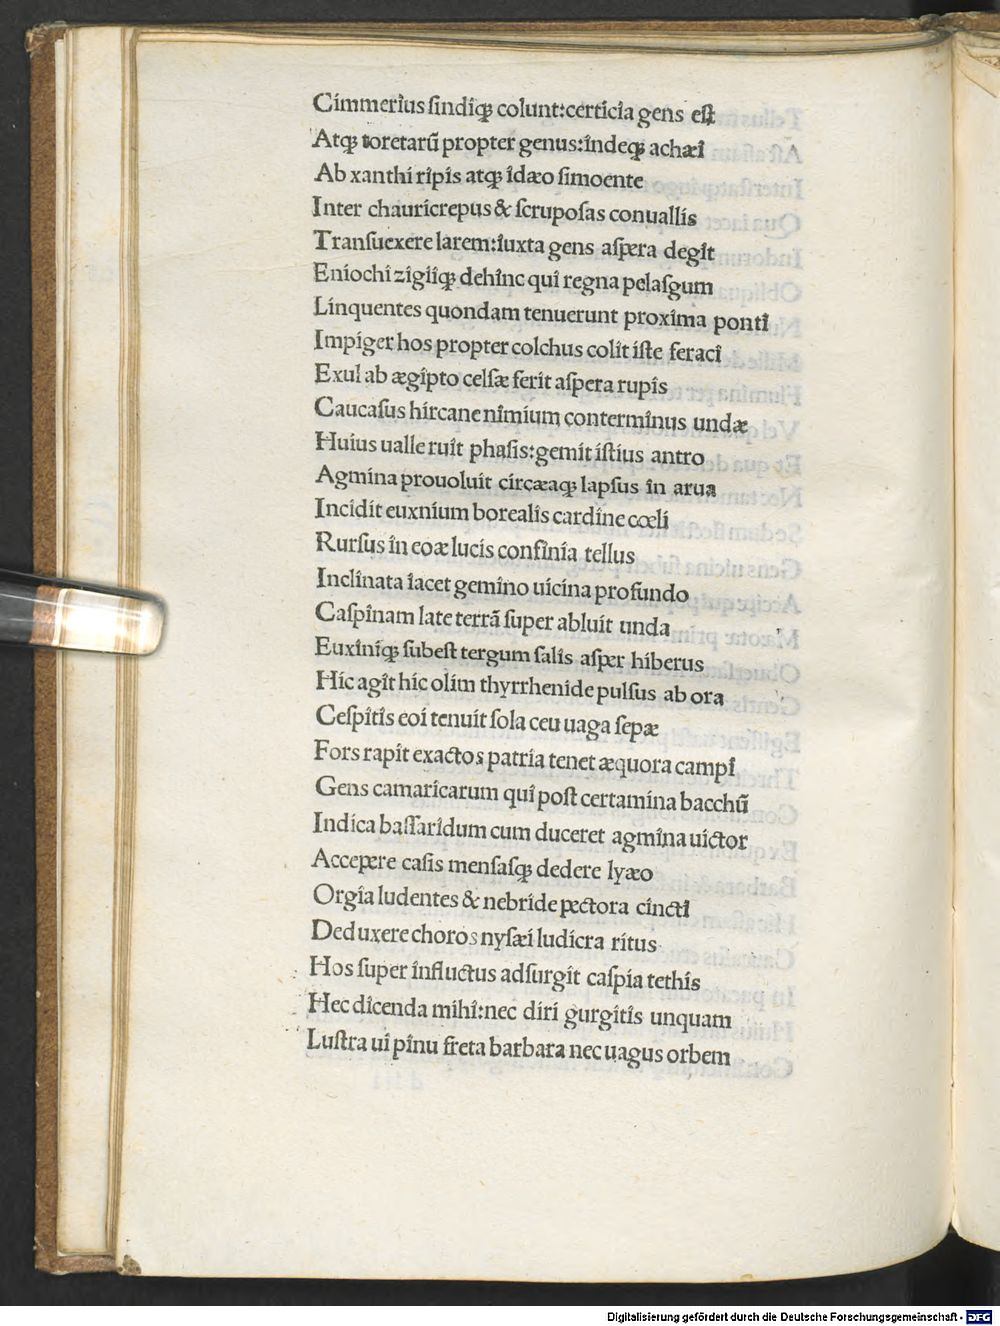 Cimmerius ſindiqꝫ colunt:certicia gens eſt
Atqꝫ toretarũ propter genus:indeqꝫ achæi
Ab xanthi ripis atqꝫ idæo ſimoente
Inter chauricrepus & ſcrupoſas conuallis
Tranſuexere larem:iuxta gens aſpera degit
Eniochi zigiiqꝫ dehinc qui regna pelaſgum
Linquentes quondam tenuerunt proxima ponti
Impiger hos propter colchus colit iſte feraci
Exul ab ægipto celſæ ferit aſpera rupis
Caucaſus hircane nimium conterminus undæ
Huius ualle ruit phaſis:gemit iſtius antro
Agmina prouoluit circæaqꝫ lapſus in arua
Incidit euxnium borealis cardine cœli
Rurſus in eoæ lucis confinia tellus
Inclinata iacet gemino uicina profundo
Caſpinam late terrã ſuper abluit unda
Euxiniqꝫ ſubeſt tergum ſalis aſper hiberus
Hic agit hic olim thyrrhenide pulſus ab ora
Ceſpitis eoi tenuit ſola ceu uaga ſepæ
Fors rapit exactos patria tenet æquora campi
Gens camaricarum qui poſt certamina bacchũ
Indica baſſaridum cum duceret agmina uictor
Accepere caſis menſaſqꝫ dedere lyæo
Orgia ludentes & nebride pectora cincti
Deduxere choros nyſæi ludicra ritus
Hos ſuper influctus adſurgit caſpia tethis
Hec dicenda mihi:nec diri gurgitis unquam
Luſtra ui pinu freta barbara nec uagus orbem
Digitalisierung gefördert durch die Deutsche Forschungsgemeinschaft - DFG